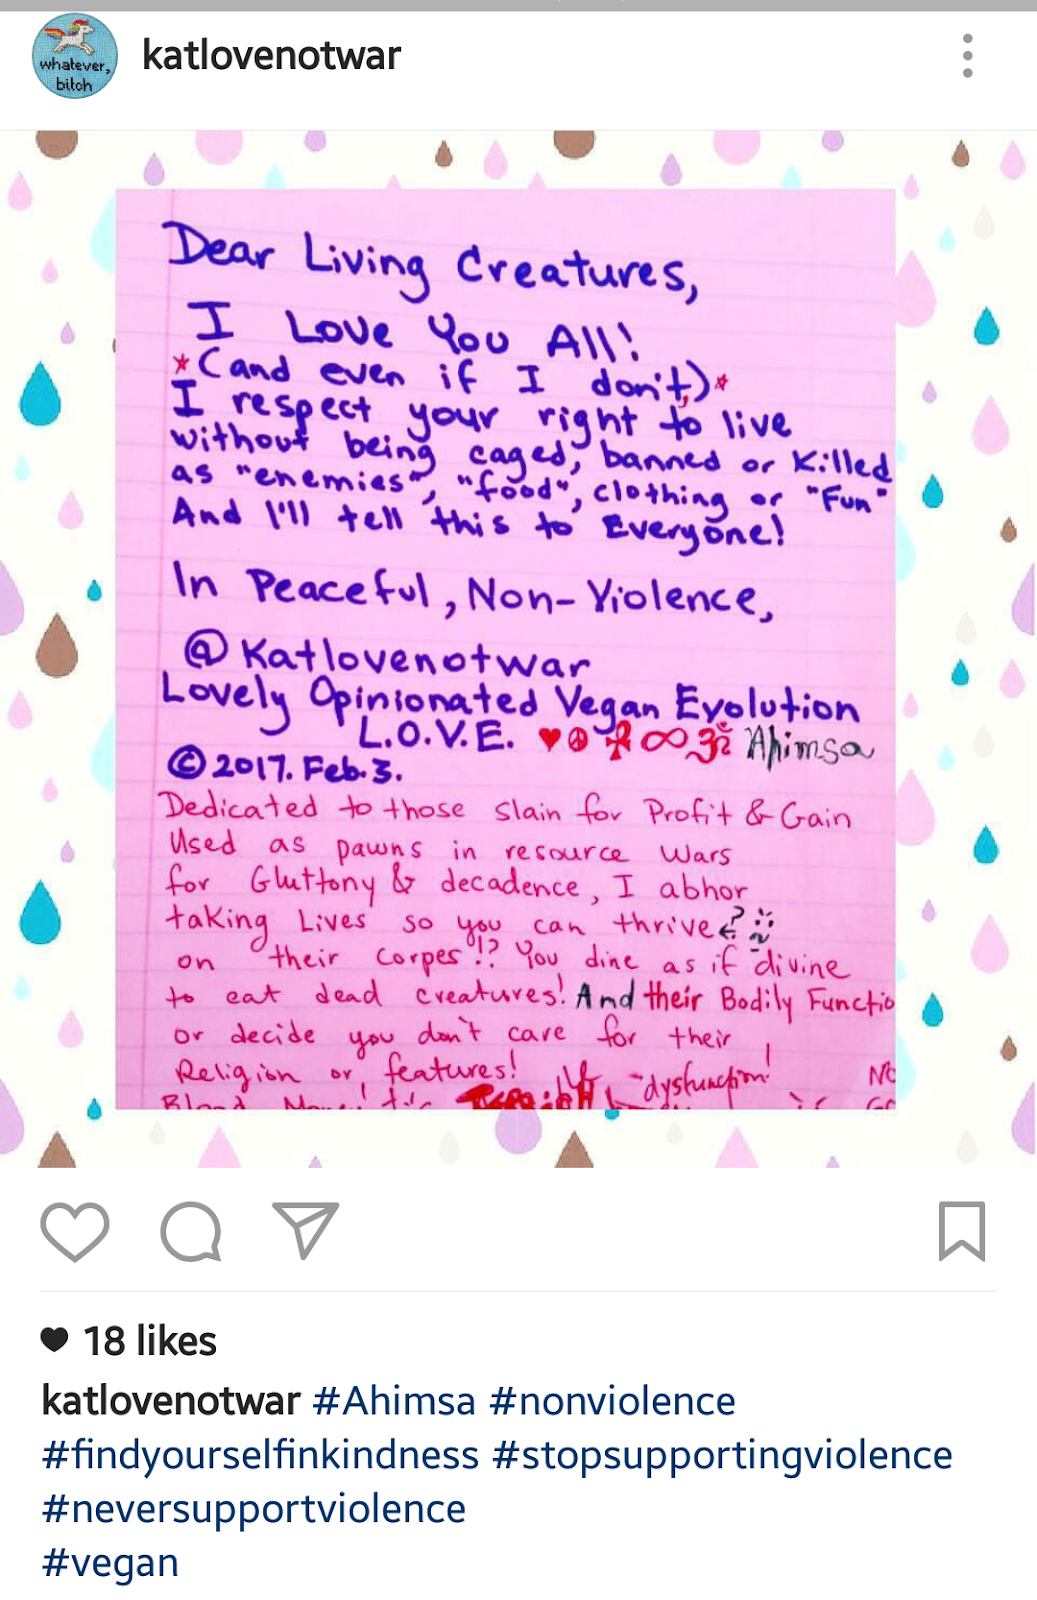 whatever,
bitch
katlovenotwar
Dear Living Creatures,
I Love You All!
*(and even if I don't,)*
I respect your right to live
without being caged, banned or killed
as "enemies", "food", clothing or "Fun"
And I'll tell this to Everyone!
In Peaceful, Non-Violence,
@Katlovenotwar
Lovely Opinionated Vegan Evolution
L.O.V.E. ♥☮☥∞ॐ Ahimsa
©2017. Feb. 3.
Dedicated to those slain for Profit & Gain
Used as pawns in resource wars
for Gluttony & decadence, I abhor
taking Lives so you can thrive
on their corpes!? You dine as if divine
to eat dead creatures! And their Bodily Functio
or decide you don't care for their
Religion or features!
dysfunction!
18 likes
katlovenotwar #Ahimsa #nonviolence
#findyourselfinkindness #stopsupportingviolence
#neversupportviolence
#vegan